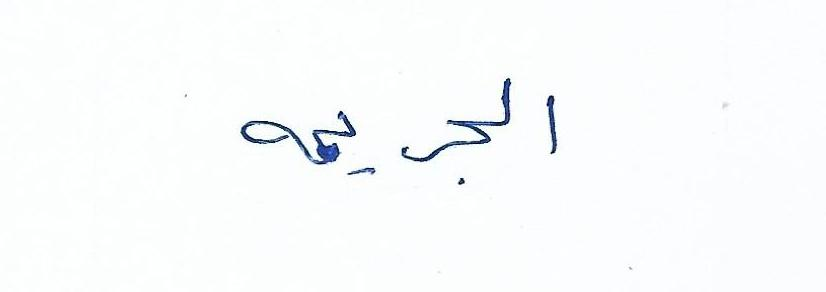 الجريمه